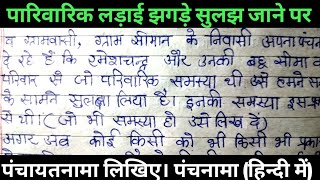 पारिवारिक लड़ाई झगड़े सुलझ जाने पर
व ग्रामवासी, ग्राम श्रीमान के निवासी अपना पंचन
दे रहे हैं कि रमेशचन्द्र और उनकी बहू सीमा व
परिवार से जो पारिवारिक समस्या थी उसे हमने स
के सामने सुलझा लिया है। इनकी समस्या इस प्र
से थी। (जो भी समस्या हो उसे लिख दे)
अगर अब कोई किसी को भी किसी भी प्रका
पंचायतनामा लिखिए। पंचनामा (हिन्दी में)